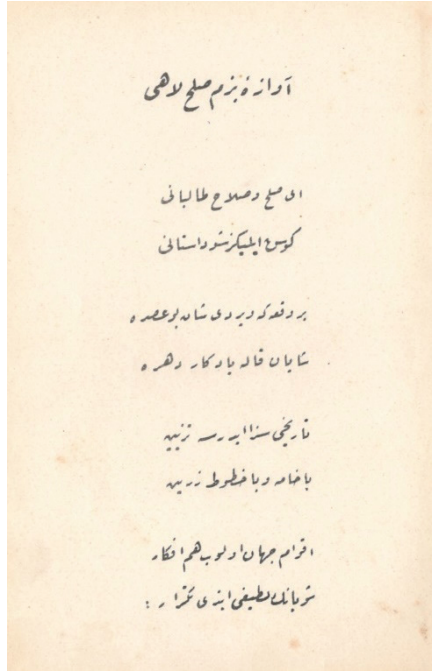 آوازۀ بزم صلح لاهی
ای صلح و صلاح طالبانی
كوس ايليكز شو داستانی
بر وقعه كه ويردی شان بو عصره
شايان قاله يادكار دهره
تاريخی سزا ايدرسه تزيين
با خامه و با خطوط زرين
اقوام جهان اولوب هم افكار
شو بانك لطيفی ايتدی تكرار :